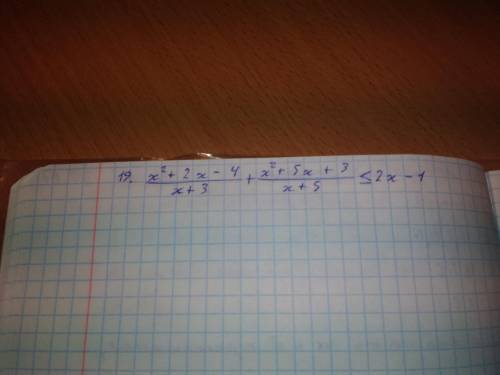 19. \frac{x^2+2x-4}{x+3} + \frac{x^2+5x+3}{x+5} ≤ 2x-1